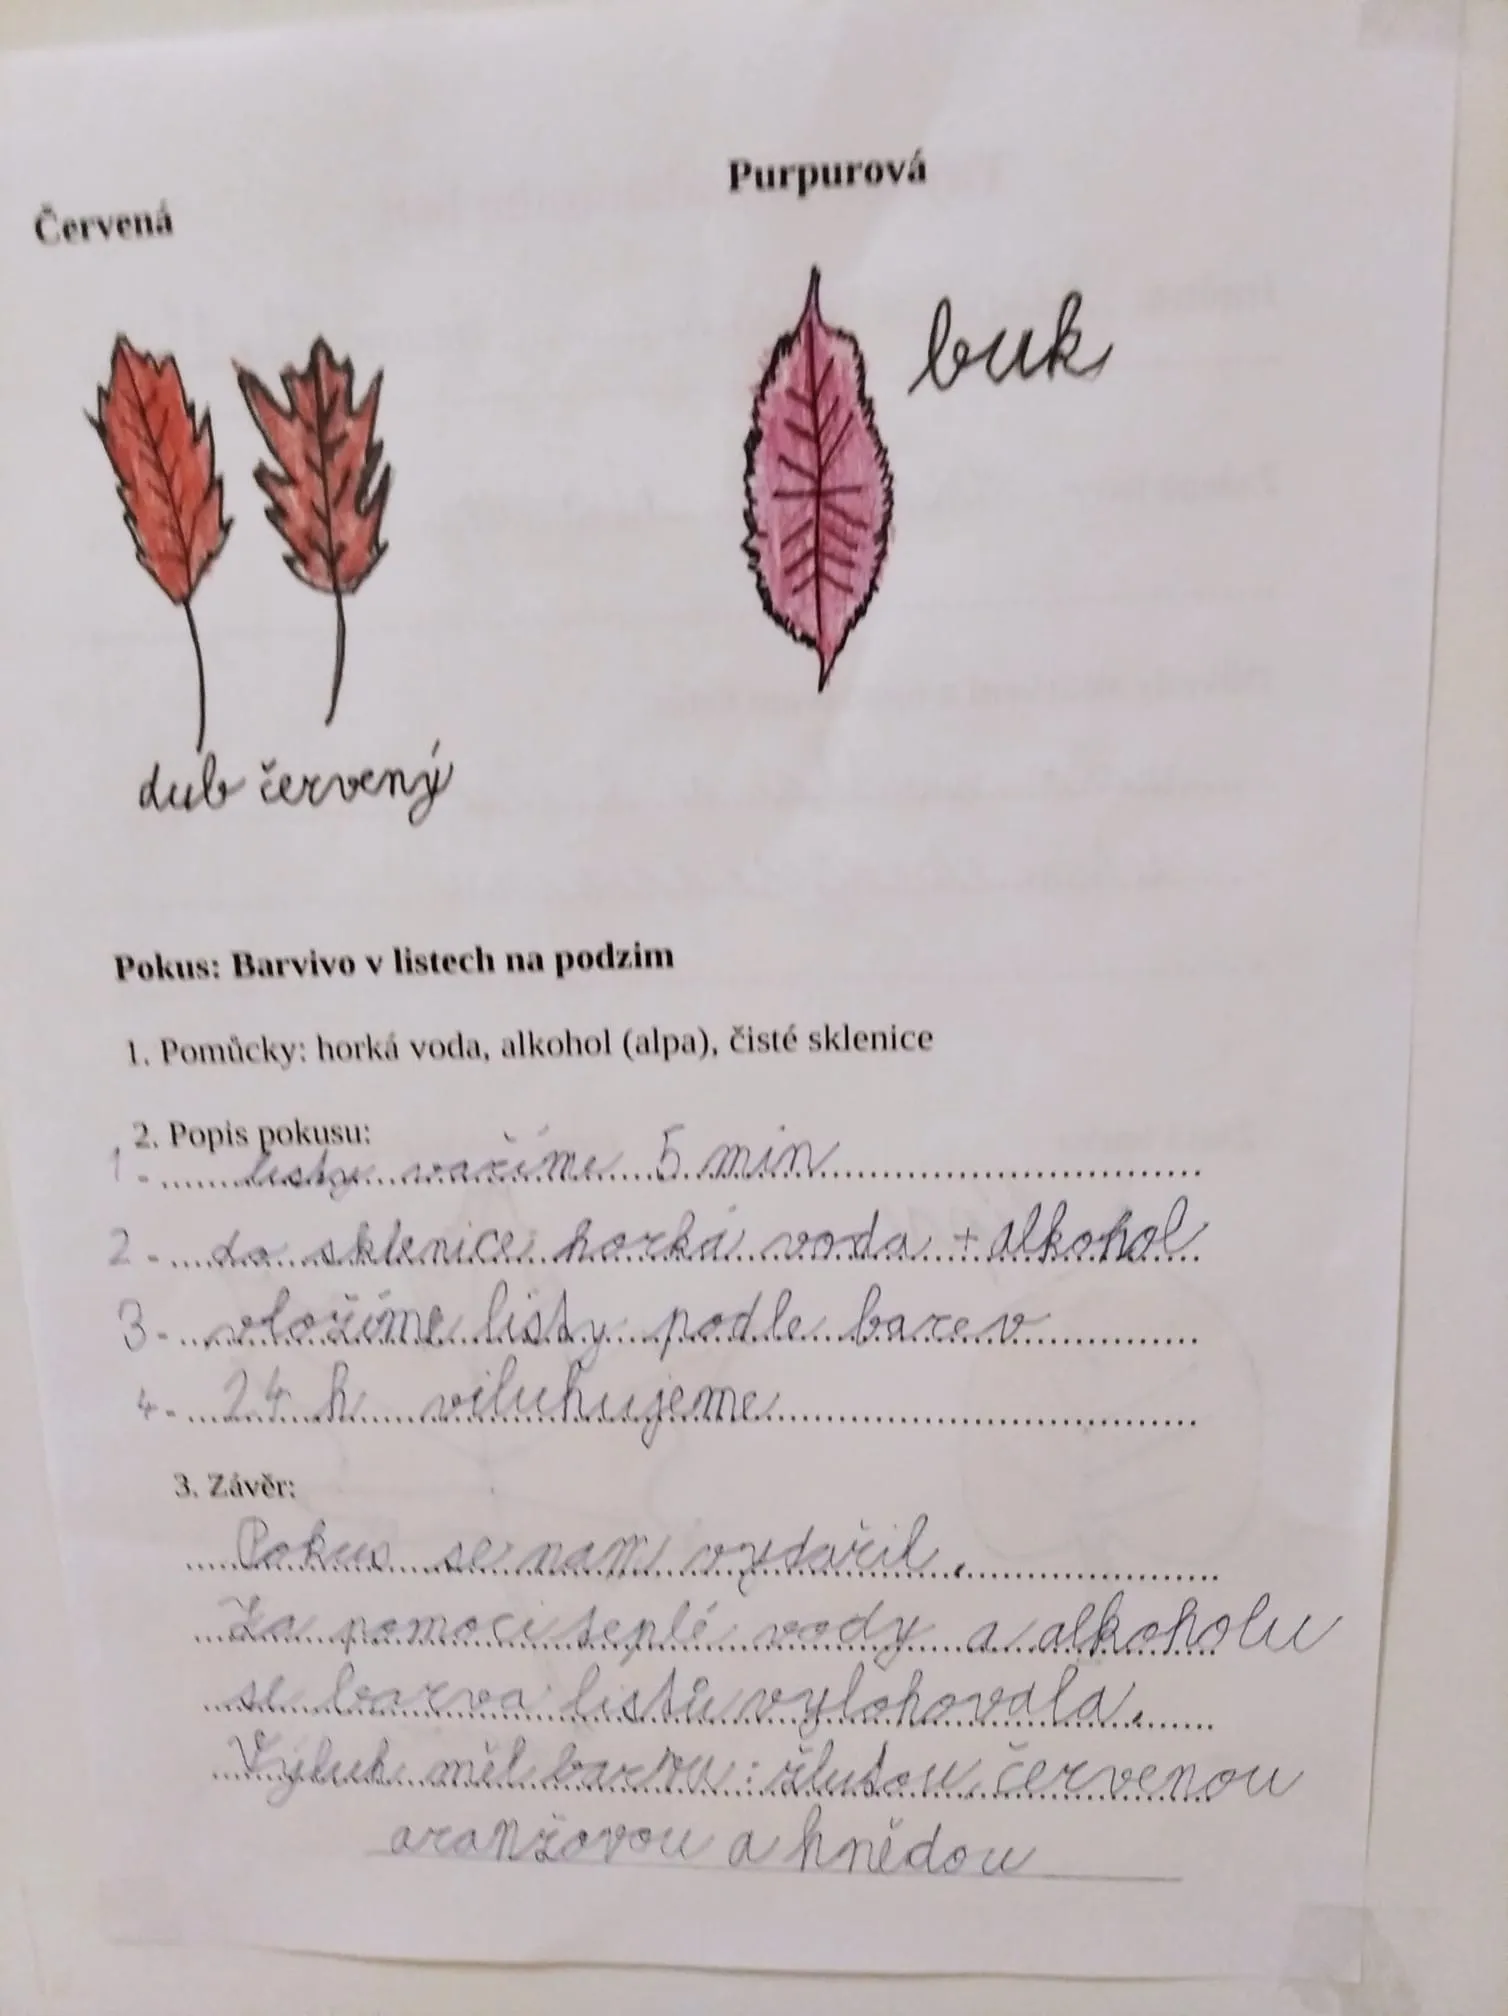 Červená
Purpurová
buk
dub červený
Pokus: Barvivo v listech na podzim
1. Pomůcky: horká voda, alkohol (alpa), čisté sklenice
2. Popis pokusu:
1- listy vaříme 5 min
2- do sklenice horká voda + alkohol
3- vložíme listy podle barev
4- 24 h viluhujeme
3. Závěr:
Pokus se nam vydařil.
Za pomoci teplé vody a alkoholu
se barva listů vylohovala.
Výluh měl barvu: žlutou, červenou
aranžovou a hnědou